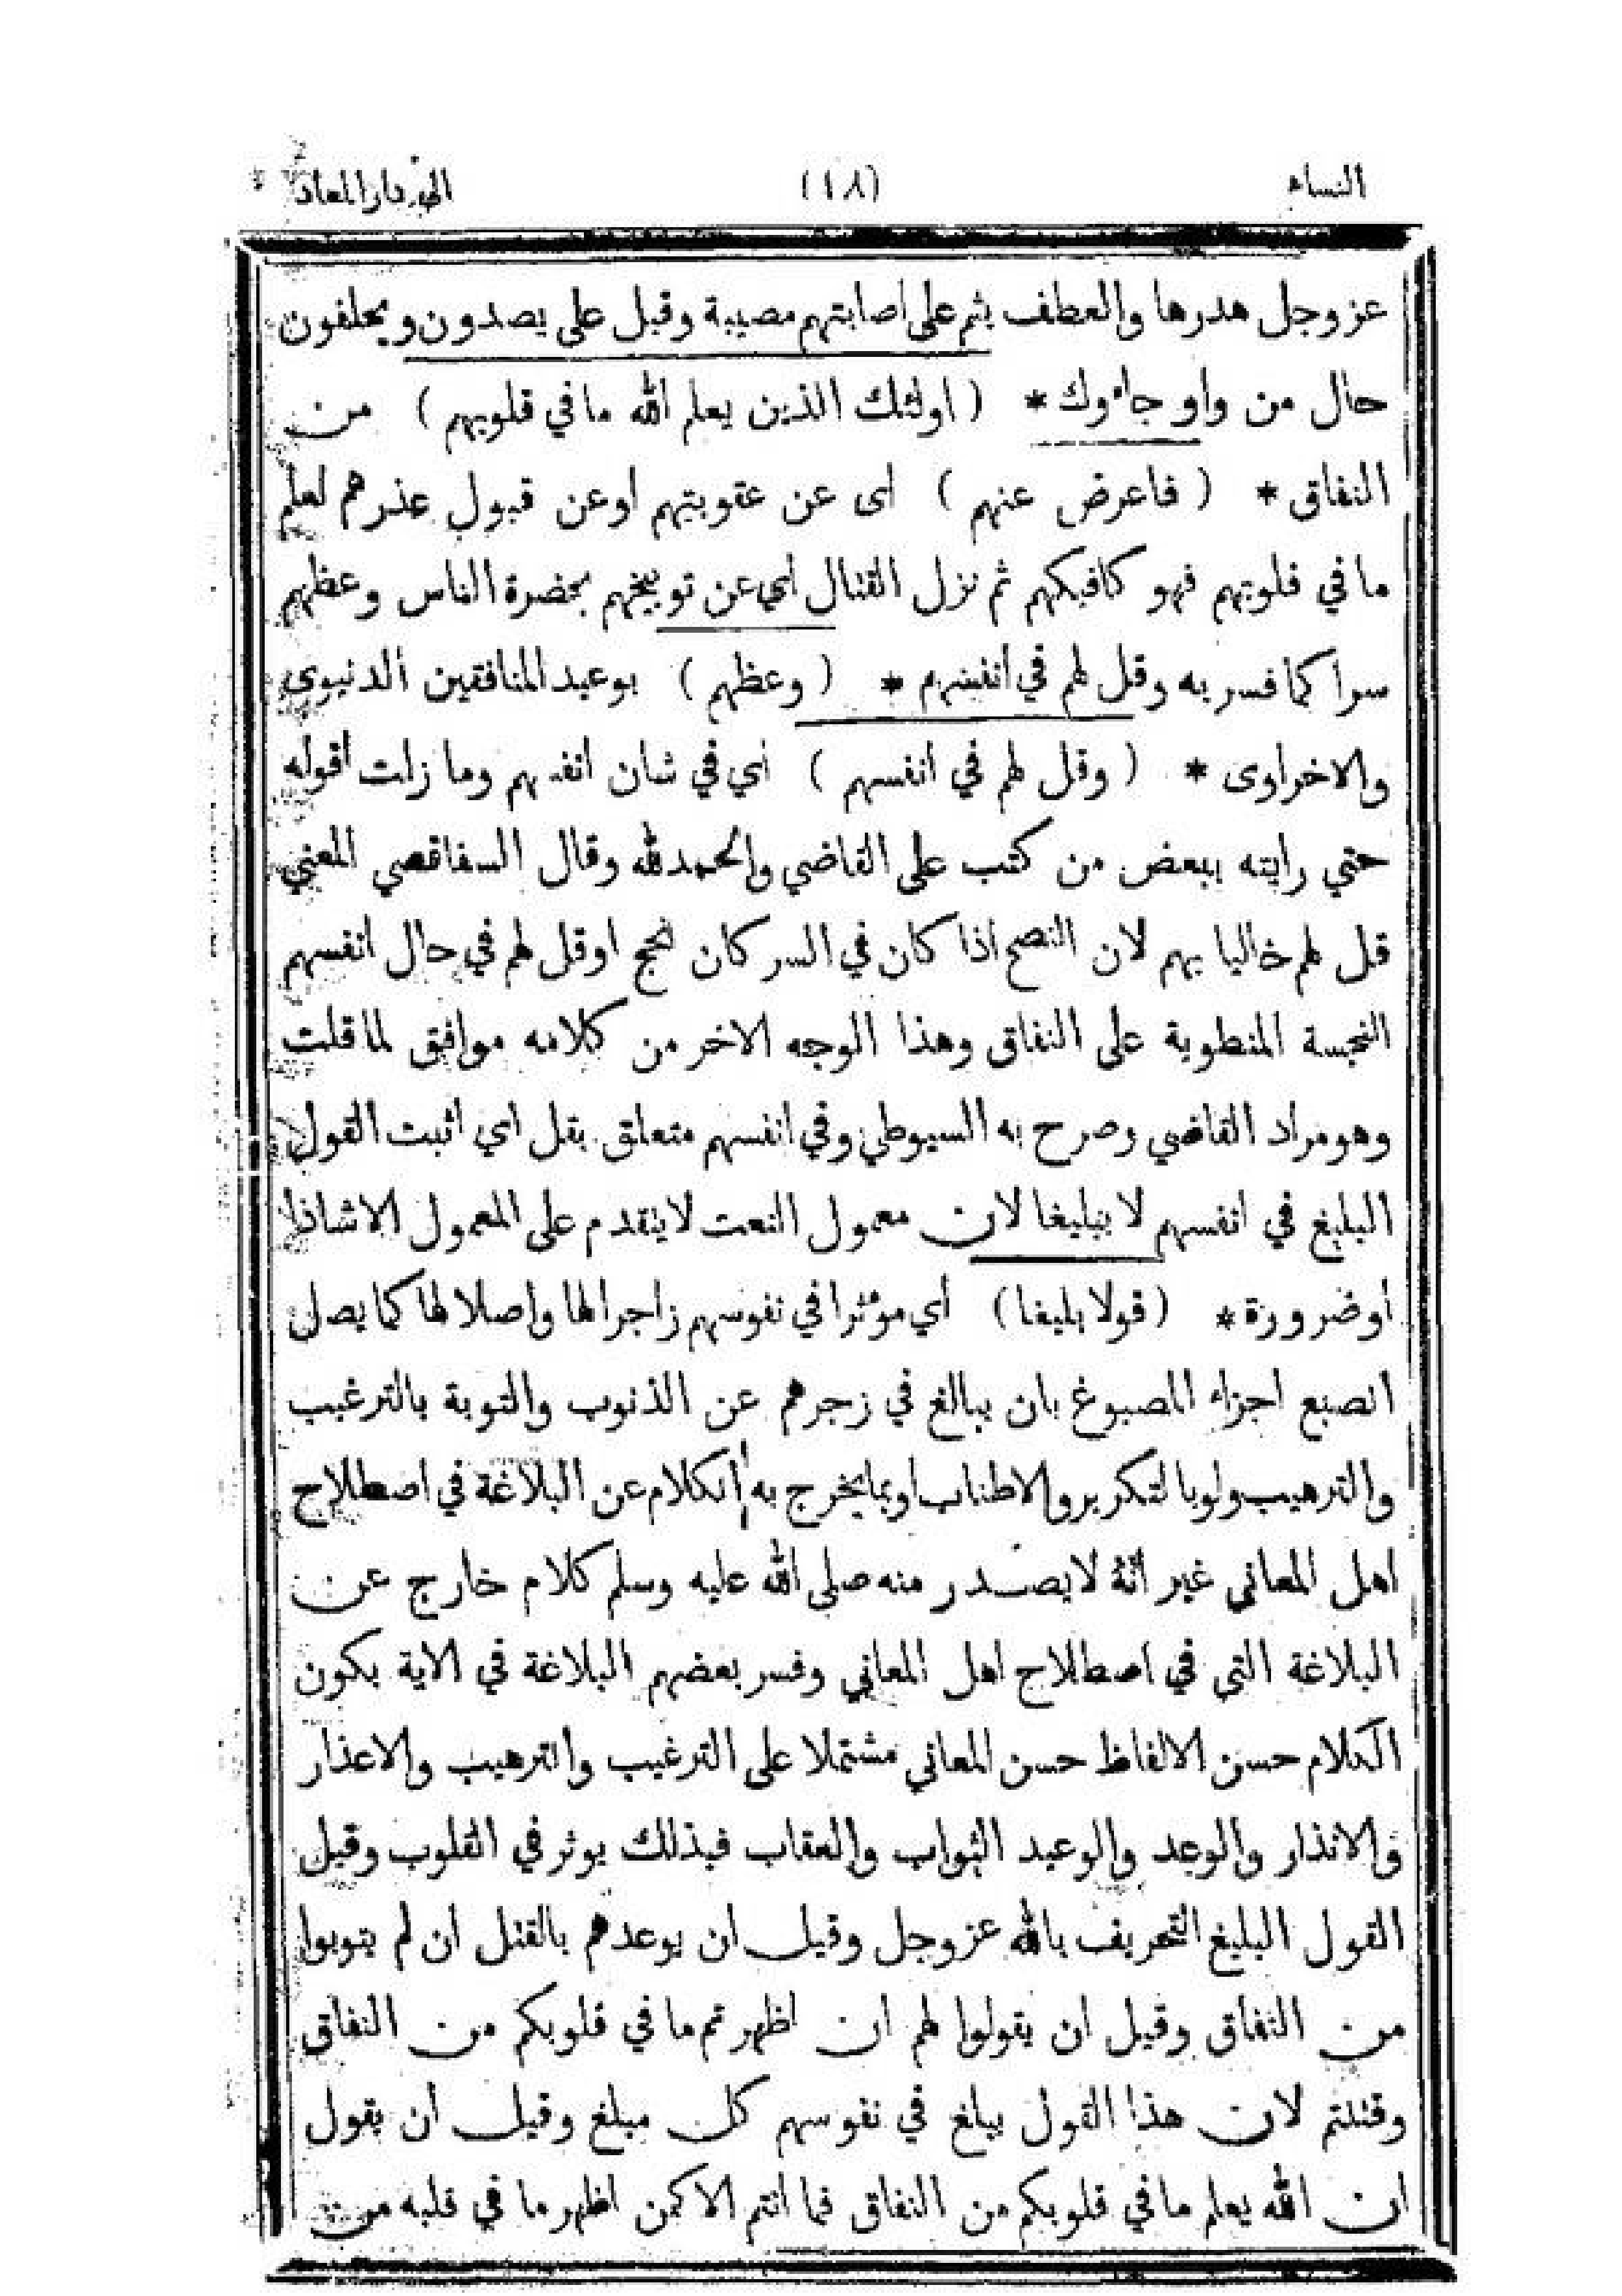 النساء (١٨) الى دار المعاد
عز وجل هدرها والعطف بثم على اصابتهم مصيبة وقيل على يصدون ويحلفون
حال من واو جاءوك * ( اولئك الذين يعلم الله ما في قلوبهم ) من
النفاق * ( فاعرض عنهم ) اى عن عقوبتهم او عن قبول عذرهم لعلم
ما في قلوبهم فهو كافيكهم ثم نزل القتال اى عن توبيخهم بحضرة الناس وعظهم
سرا كما فسر به وقل لهم في أنفسهم * ( وعظهم ) بوعيد المنافقين الدنيوي
والاخراوى * ( وقل لهم في انفسهم ) أي في شان انفسهم وما زلت اقوله
حتي رايته ببعض من كتب على القاضي والحمد لله وقال السفاقصي المعني
قل لهم خاليا بهم لان النصح اذا كان في السر كان انجح او قل لهم في حال انفسهم
النجسة المنطوية على النفاق وهذا الوجه الاخر من كلامه موافق لما قلت
وهو مراد القاضي وصرح به السيوطي وفي انفسهم متعلق بقل اي اثبت القول
البليغ في انفسهم لا ببليغا لان معمول النعت لا يتقدم على المعمول الا شاذا
أو ضرورة * ( قولا بليغا ) أي موثرا في نفوسهم زاجرا لها واصلا لها كما يصل
الصبع اجزاء المصبوغ بان يبالغ في زجرهم عن الذنوب والتوبة بالترغيب
والترهيب ولو بالتكرير والاطناب او بما يخرج به الكلام عن البلاغة في اصطلاح
اهل المعاني غير أنه لا يصدر منه صلى الله عليه وسلم كلام خارج عن
البلاغة التي في اصطلاح اهل المعاني وفسر بعضهم البلاغة في الاية بكون
الكلام حسن الالفاظ حسن المعاني مشتملا على الترغيب والترهيب والاعذار
والانذار والوعد والوعيد الثواب والعقاب فبذلك يوثر في القلوب وقيل
القول البليغ التعريف بالله عز وجل وقيل ان يوعدهم بالقتل ان لم يتوبوا
من النفاق وقيل ان يقولوا لهم ان اظهرتم ما في قلوبكم من النفاق
وقتلتم لان هذا القول يبلغ في نفوسهم كل مبلغ وقيل ان يقول
ان الله يعلم ما في قلوبكم من النفاق فما انتم الا كمن اظهر ما في قلبه من